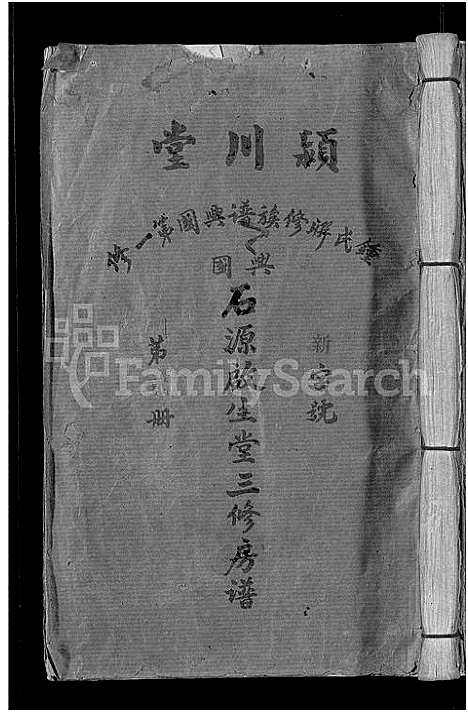 頴川堂
鍾氏聯修族谱興國第一修
興國
新字號
石源啟生堂三修房谱
第 册
FamilySearch